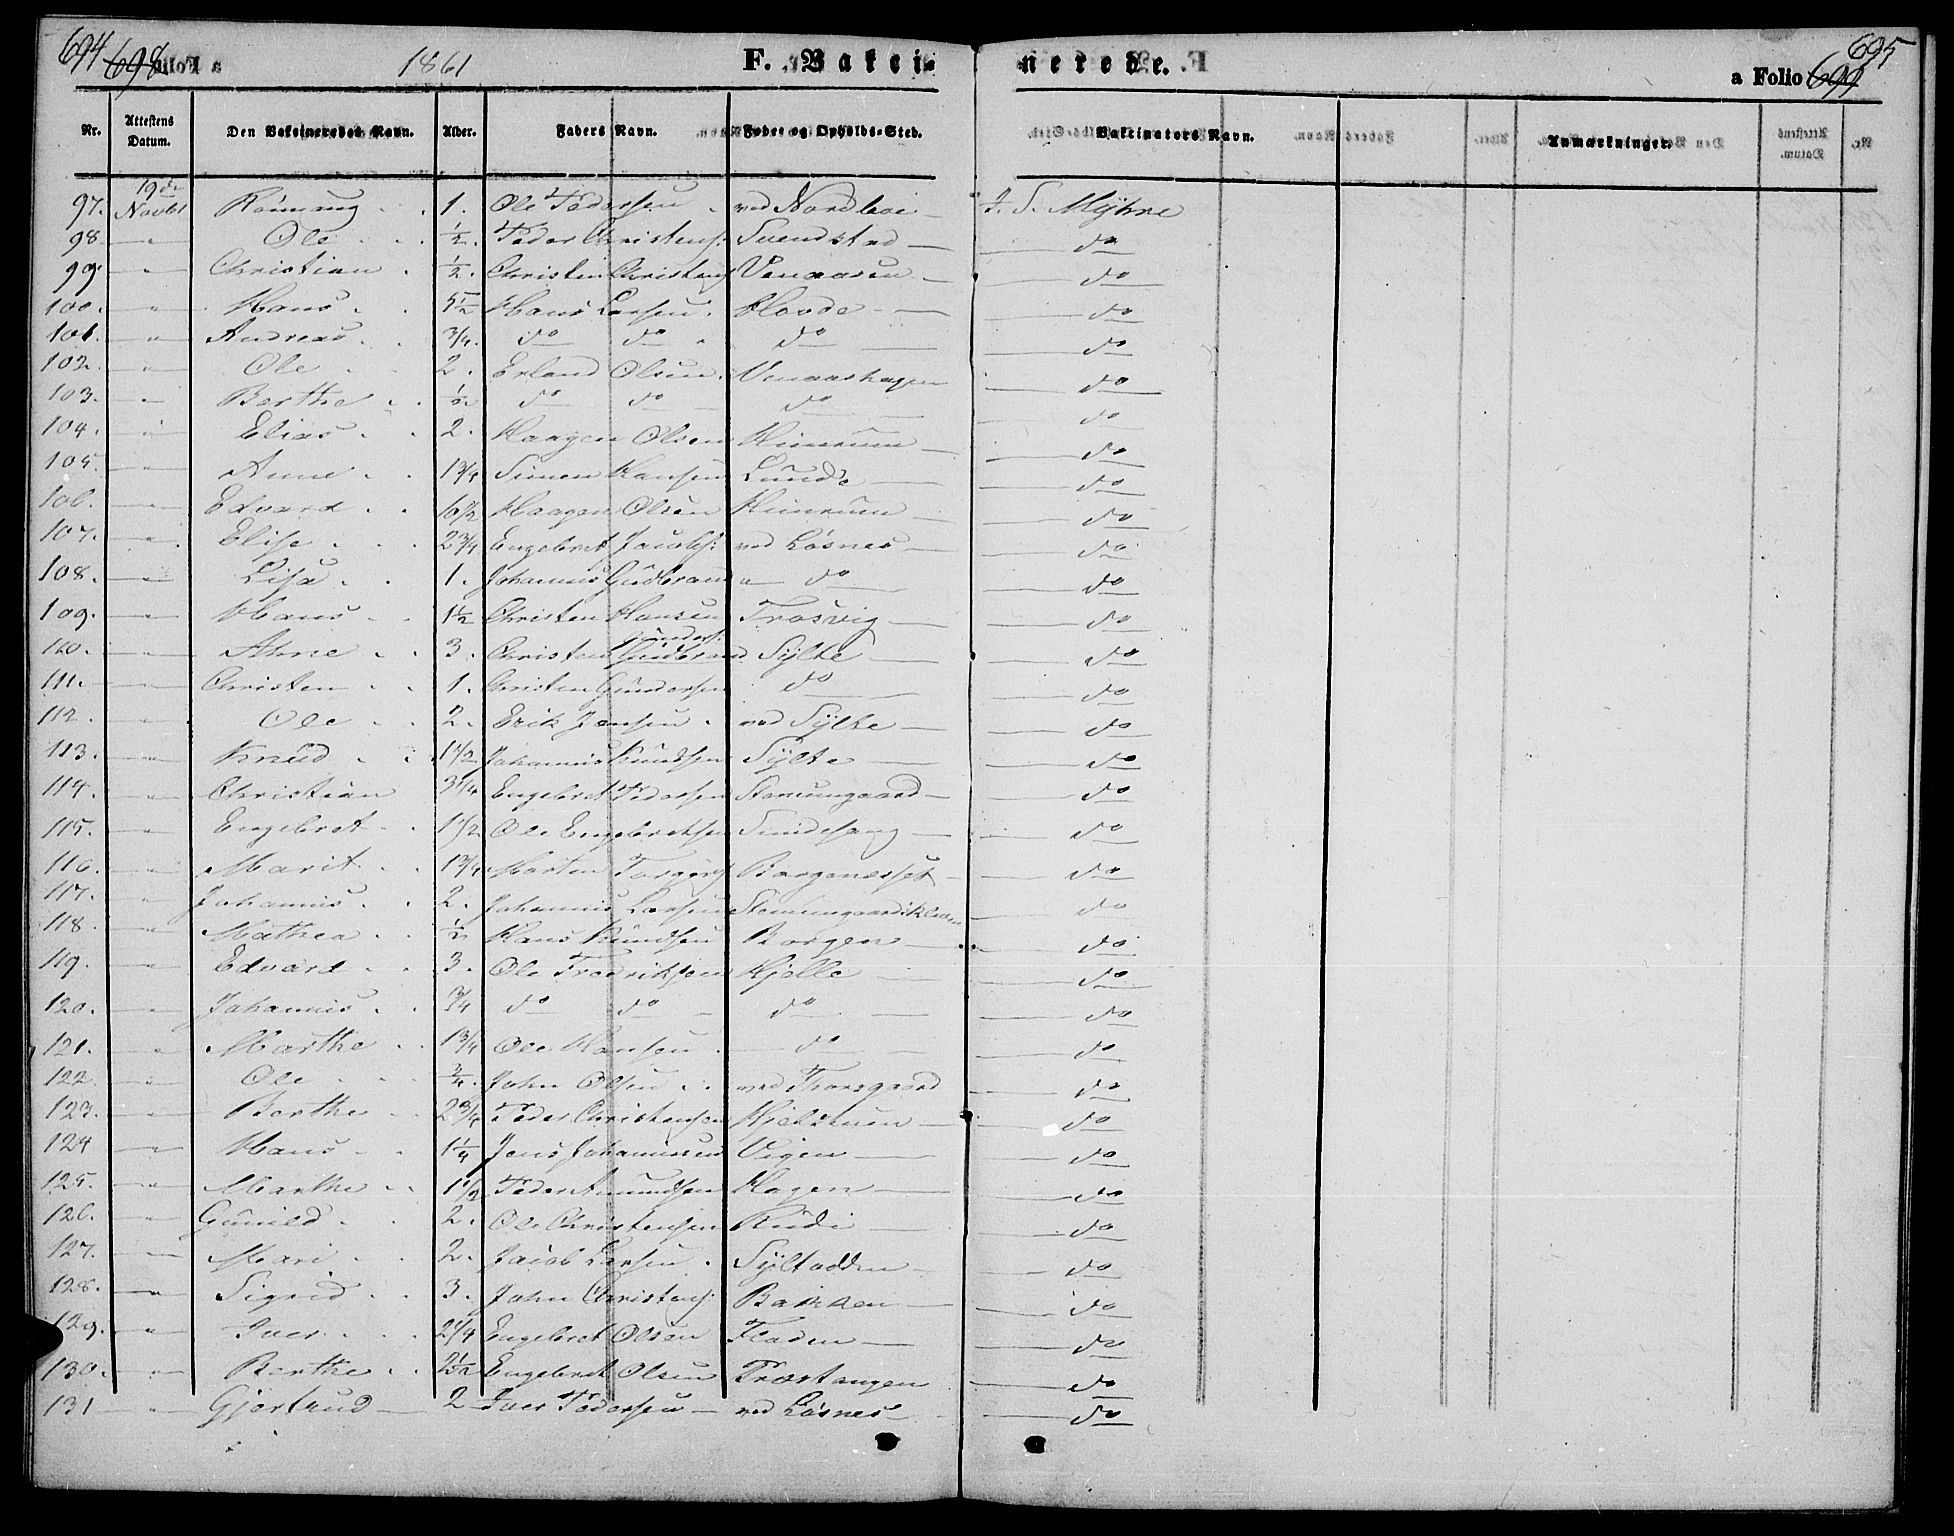 694 698 a Folio 1861 F. Vakci- nerede. a Folio 699 695
Nr. Attestens Datum. Den Vakcineredes Navn. Alder. Faders Navn. Føde- og Opholds-Sted. Vakcinators Navn. Anmærkninger.
97. 19de Novbr 1. Ole Pedersen ved Nordlien J. S. Myhre
98 " Ole ½. Peder Christens: Svendstad do
99. " Christian ½. Christen Christens Venaasen do
100. " Hans 5½ Hans Larsen Hovde do
101. " Andreas ¾. do do do do
102. " Ole 2. Erland Olsen Venaashagen do
103. " Berthe ½ do do do do
104. " Elias 2. Haagen Olsen Kinrum do
105. " Anne 1¾ Simen Hansen Lunde do
106. " Edvard 10½ Haagen Olsen Kinrum do
107. " Elise 2¾ Engebret Jacobs: ved Losnes do
108. " Lisa 1. Johannes Gudbrand " do do
109. " Hans 1½ Christen Hansen Trosvig do
110. " Ahne 3. Christen Gudbrand Gunders: Sylte do
111. " Christen 1. Christen Gundersen do do
112. " Ole 2. Erik Jensen ved Sylte do
113. " Knud 1½ Johannes Knudsen Sylte do
114. " Christian 3¼ Engebret Pedersen Stemumgaard do
115. " Engebret 1½ Ole Engebretsen do
116. " Marit 1¾ Morten Torgers Borgenesset do
117. " Johannes 2. Johannes Larsen do
118. " Mathea ½ Hans Knudsen Borgen do
119. " Edvard 3. Ole Fredriksen Kjelle do
120. " Johannes ¾ do do do do
121. " Marthe 1¾ Ole Hansen do do
122 " Ole ¾. John Olsen ved Thorsgaard do
123. " Berthe 2¾ Peder Christensen Kjelstuen do
124 " Hans 1¼ Jens Johannesen Vigen do
125. " Marthe 1½ Peder Amundsen Hagen do
126. " Gunild 2. Ole Christensen Rudi do
127. " Mari 2. Jacob Larsen Syltodden do
128. " Sigrid 3. John Christens: Bakken do
129. " Iver 2¼ Engebret Olsen Fladen do
130. " Berthe 2½ Engebret Olsen Træstangen do
131 " Gjertrud 2 Iver Pedersen ved Losnes do